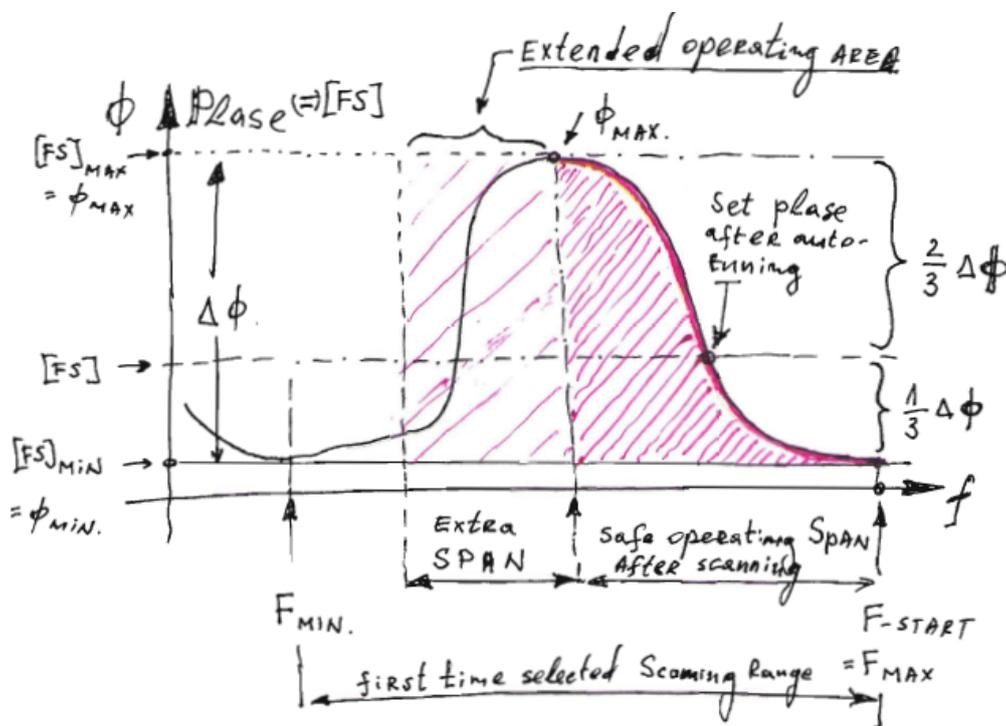 Extended operating AREA
ϕ Plase (=) [FS]
ϕ MAX.
[FS] MAX
= ϕ MAX
Set plase
after auto-
tunning
2/3 Δϕ
Δϕ.
[FS]
1/3 Δϕ
[FS] MiN
= ϕ MiN.
f
Extra
SPAN
Safe operating SpAN
After scanning
F MiN.
F-START
= F MAX
first time selected Scaming Range